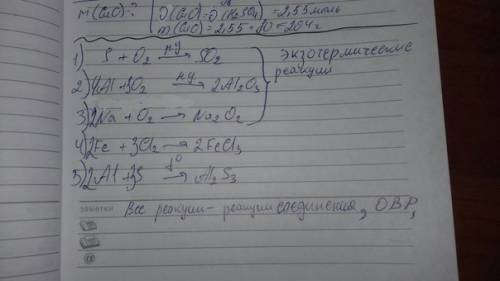 m(CuO)-?
ν(CuO)=ν(H₂SO₄)=2,55 моль
m(CuO)=2,55·80=204 г
1) S + O₂ н.у → SO₂
2) 4Al + 3O₂ н.у → 2Al₂O₃
3) 2Na + O₂ → Na₂O₂
экзотермические
реакции
4) 2Fe + 3Cl₂ → 2FeCl₃
5) 2Al + 3S t° → Al₂S₃
заметки
Все реакции - реакции соединения, ОВР,
@